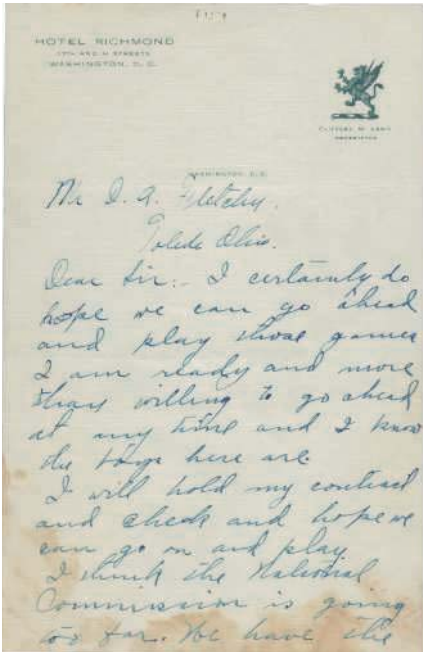 HOTEL RICHMOND
17TH AND H STREETS
WASHINGTON, D. C.
CLIFFORD M. LEWIS
PROPRIETOR
WASHINGTON, D.C.
Mr D. A. Fletcher.
Toledo Ohio.
Dear Sir:- I certainly do
hope we can go ahead
and play those games
I am ready and more
than willing to go ahead
at any time and I know
the boys here are.
I will hold my contract
and check and hope we
can go on and play.
I think the National
Commission is going
too far. We have the